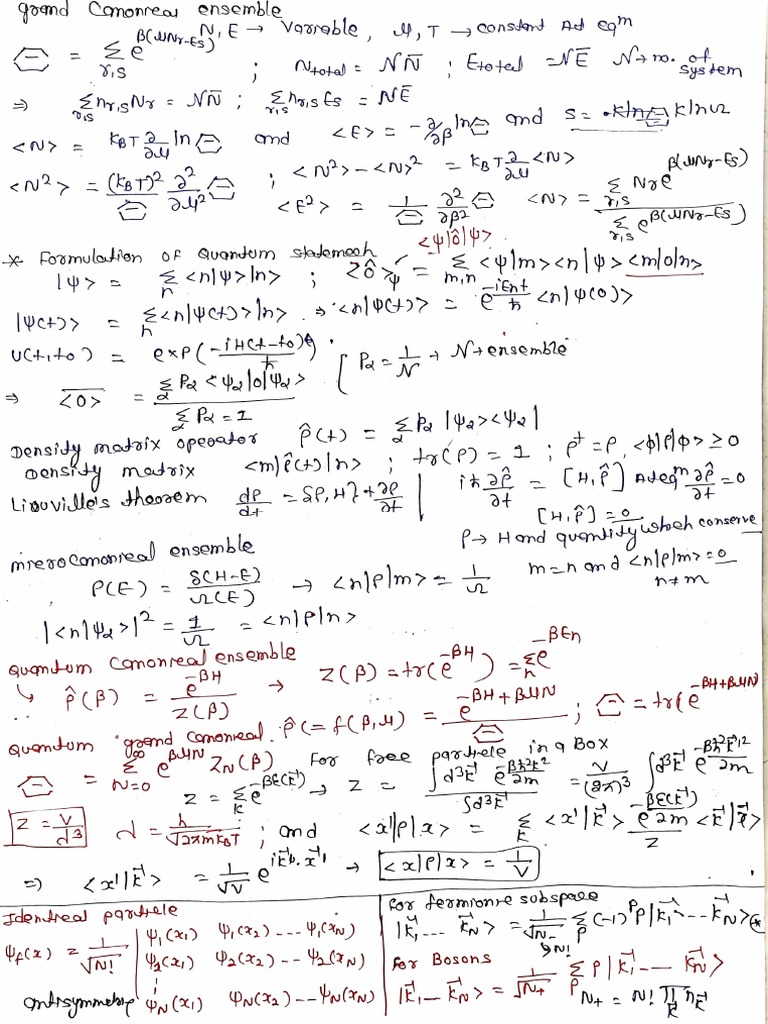 grand Canonical ensemble
Ξ = Σ_{r,s} e^{β(μNr-Es)} N,E → Variable, μ,T → constant At eq^m
; N_total = 𝒩N̄ ; E_total = 𝒩Ē 𝒩 → no. of system
⇒ Σ_{r,s} n_{r,s} Nr = 𝒩N̄ ; Σ_{r,s} n_{r,s} Es = 𝒩Ē
<N> = K_BT ∂/∂μ ln Ξ and <E> = -∂/∂β ln Ξ and S = k ln Ω
<N²> = (k_BT)²/Ξ ∂²/∂μ² Ξ ; <N²> - <N>² = k_BT ∂/∂μ <N>
<E²> = 1/Ξ ∂²/∂β² Ξ <N> = Σ_{r,s} Nr e^{β(μNr-Es)} / Σ_{r,s} e^{β(μNr-Es)}
* Formulation of Quantum statmech <ψ|ô|ψ>
|ψ> = Σ_n <n|ψ>|n> ; <ô>_ψ = Σ_{m,n} <ψ|m><n|ψ><m|o|n>
|ψ(t)> = Σ_n <n|ψ(t)>|n> → <n|ψ(t)> = e^{-iEnt/ħ} <n|ψ(0)>
U(t,t0) = exp(-iH(t-t0)/ħ) [ Pα = 1/𝒩 → 𝒩 → ensemble
⇒ <O> = Σ_α Pα <ψα|o|ψα> / Σ_α Pα = 1
Density matrix operator ρ̂(t) = Σ_α Pα |ψα><ψα|
Density matrix <m|ρ̂(t)|n> ; tr(ρ) = 1 ; ρ† = ρ, <φ|ρ|φ> ≥ 0
Liouville's theorem dρ/dt = {ρ,H} + ∂ρ/∂t | iħ ∂ρ̂/∂t = [H,ρ̂] At eq^m ∂ρ̂/∂t = 0
[H,ρ̂] = 0
ρ → H and quantity which conserve
microcanonical ensemble
ρ(E) = δ(H-E)/Ω(E) → <n|ρ|m> = 1/Ω m=n and <n|ρ|m> = 0 n≠m
|<n|ψα>|² = 1/Ω = <n|ρ|n>
Quantum Canonical ensemble
↳ ρ̂(β) = e^{-βH}/Z(β) → Z(β) = tr(e^{-βH}) = Σ_n e^{-βEn}
Quantum grand canonical ρ̂(= f(β,μ) = e^{-βH+βμN}/Ξ ; Ξ = tr(e^{-βH+βμN}
Ξ = Σ_{N=0}^∞ e^{βμN} Z_N(β) For free particle in a Box
Z = Σ_k e^{-βE(k⃗)} → Z = ∫d³k⃗ e^{-βħ²k²/2m} / ∫d³k⃗ = V/(2π)³ ∫d³k⃗ e^{-βħ²k⃗²/2m}
Z = V/λ³ λ = h/√2πmk_BT ; and <x'|ρ|x> = Σ_k <x'|k⃗> e^{-βE(k⃗)/2m}/Z <k⃗|x⃗>
⇒ <x'|k⃗> = 1/√V e^{ik⃗.x⃗'} → <x|ρ|x> = 1/V
Identical particle
ψf(x) = 1/√N! | ψ1(x1) ψ1(x2) ... ψ1(xN)
ψ2(x1) ψ2(x2) -- ψ2(xN)
antisymmetric ψN(x1) ψN(x2) -- ψN(xN)
For fermionic subspace
|k⃗1 ... k⃗N> = 1/√N- Σ_P (-1)^P P|k⃗1 ... k⃗N> *
↳ N!
For Bosons
|k⃗1 ... k⃗N> = 1/√N+ Σ_P P|k⃗1 ---- k⃗N>
N+ = N! ∏_k⃗ n_k⃗